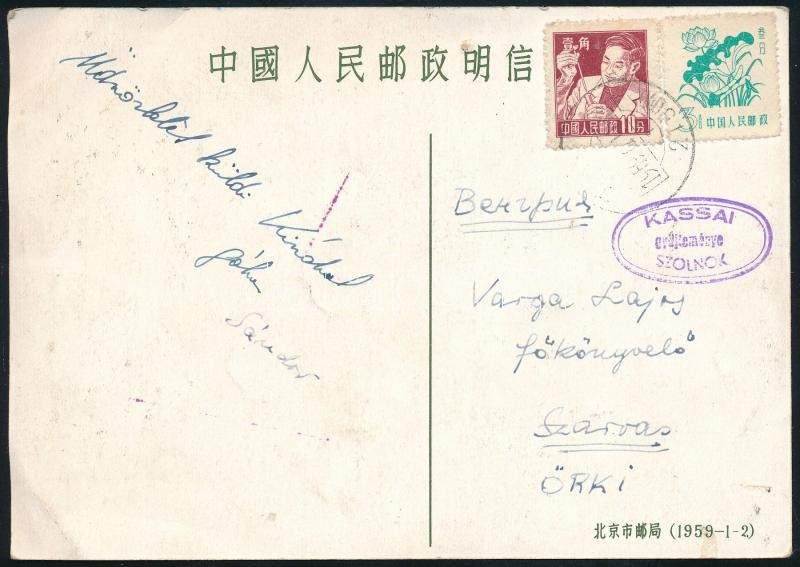 中國人民邮政明信
壹角
中國人民邮政 10分
叁分
3分 中國人民邮政
Üdvözletét küldi
Kínából
Sándor
Венгрия
KASSAI
gyűjteménye
SZOLNOK
Varga Lajos
főkönyvelő
Szarvas
ÖRKI
北京市邮局 (1959-1-2)